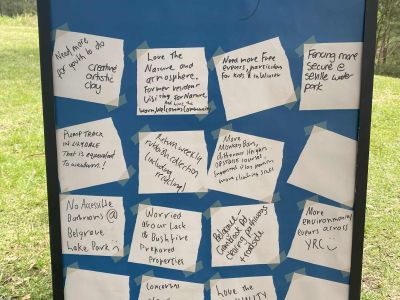 Need more
for youth to do
creative
artistic
clay
Love the
Nature and
atmosphere,
Former resident
Visiting for Nature
And love the
warm, welcoming community
Need more Free
events, particularly
for kids &
Fencing more
secure @
seville water
park
Pump Track
in Lilydale
that is equivalent
to Woodburn!
Return weekly
rubbish collection
(including
recycling)
More
Monkey Bars,
different heights
obstacle courses,
more climbing stuff
No Accessible
Bathrooms @
Belgrave
Lake Park :(
Worried
about Lack
of Bushfire
Prepared
Properties
Belgrave
Gembrook Rd
clearing pathways
+ roadside
More
environmental
events across
YRC :)
Concerns
Love the